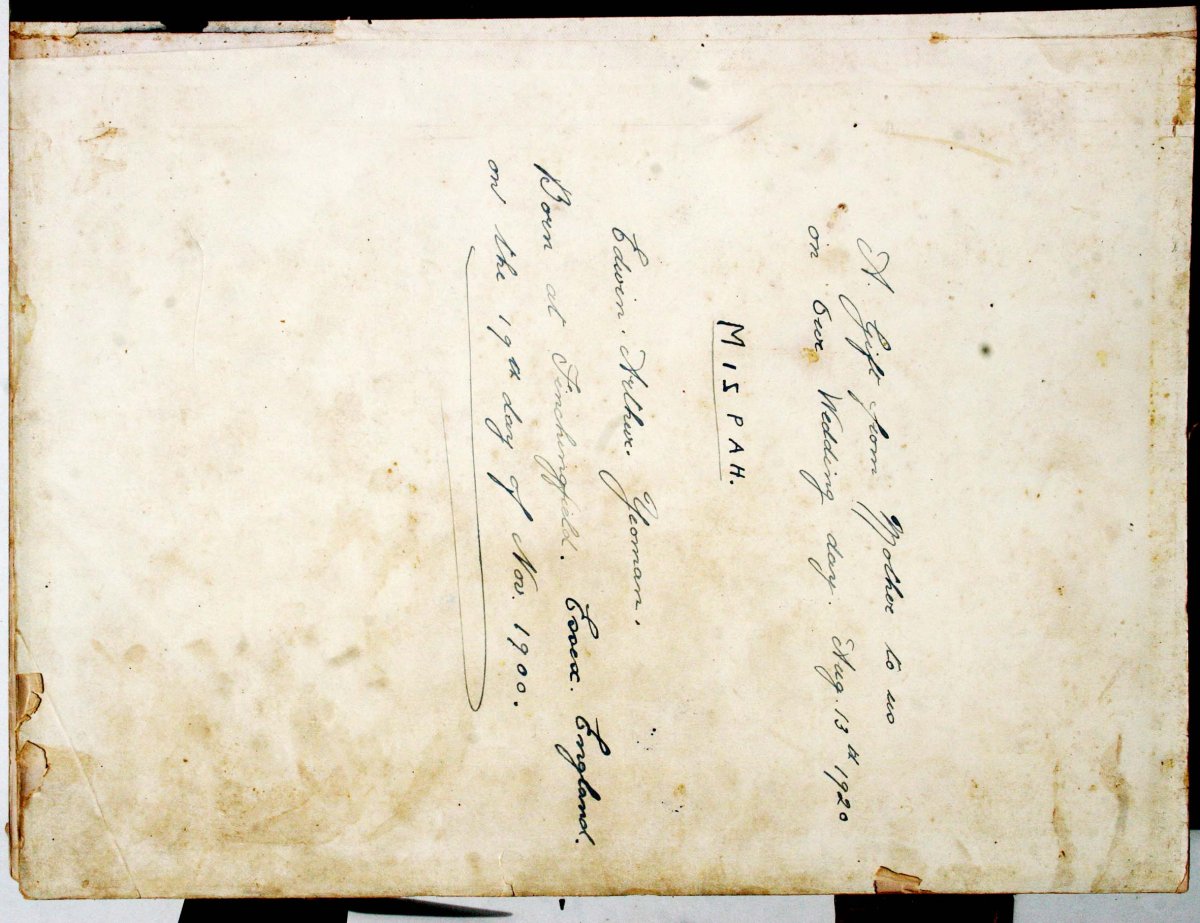 A. Gift from Mother to us
on Our Wedding day. Aug. 13th 1920
MISPAH.
Edwin. Arthur. Yeoman.
Born at Finchingfield. Essex. England.
on the 19th day of Nov. 1900.